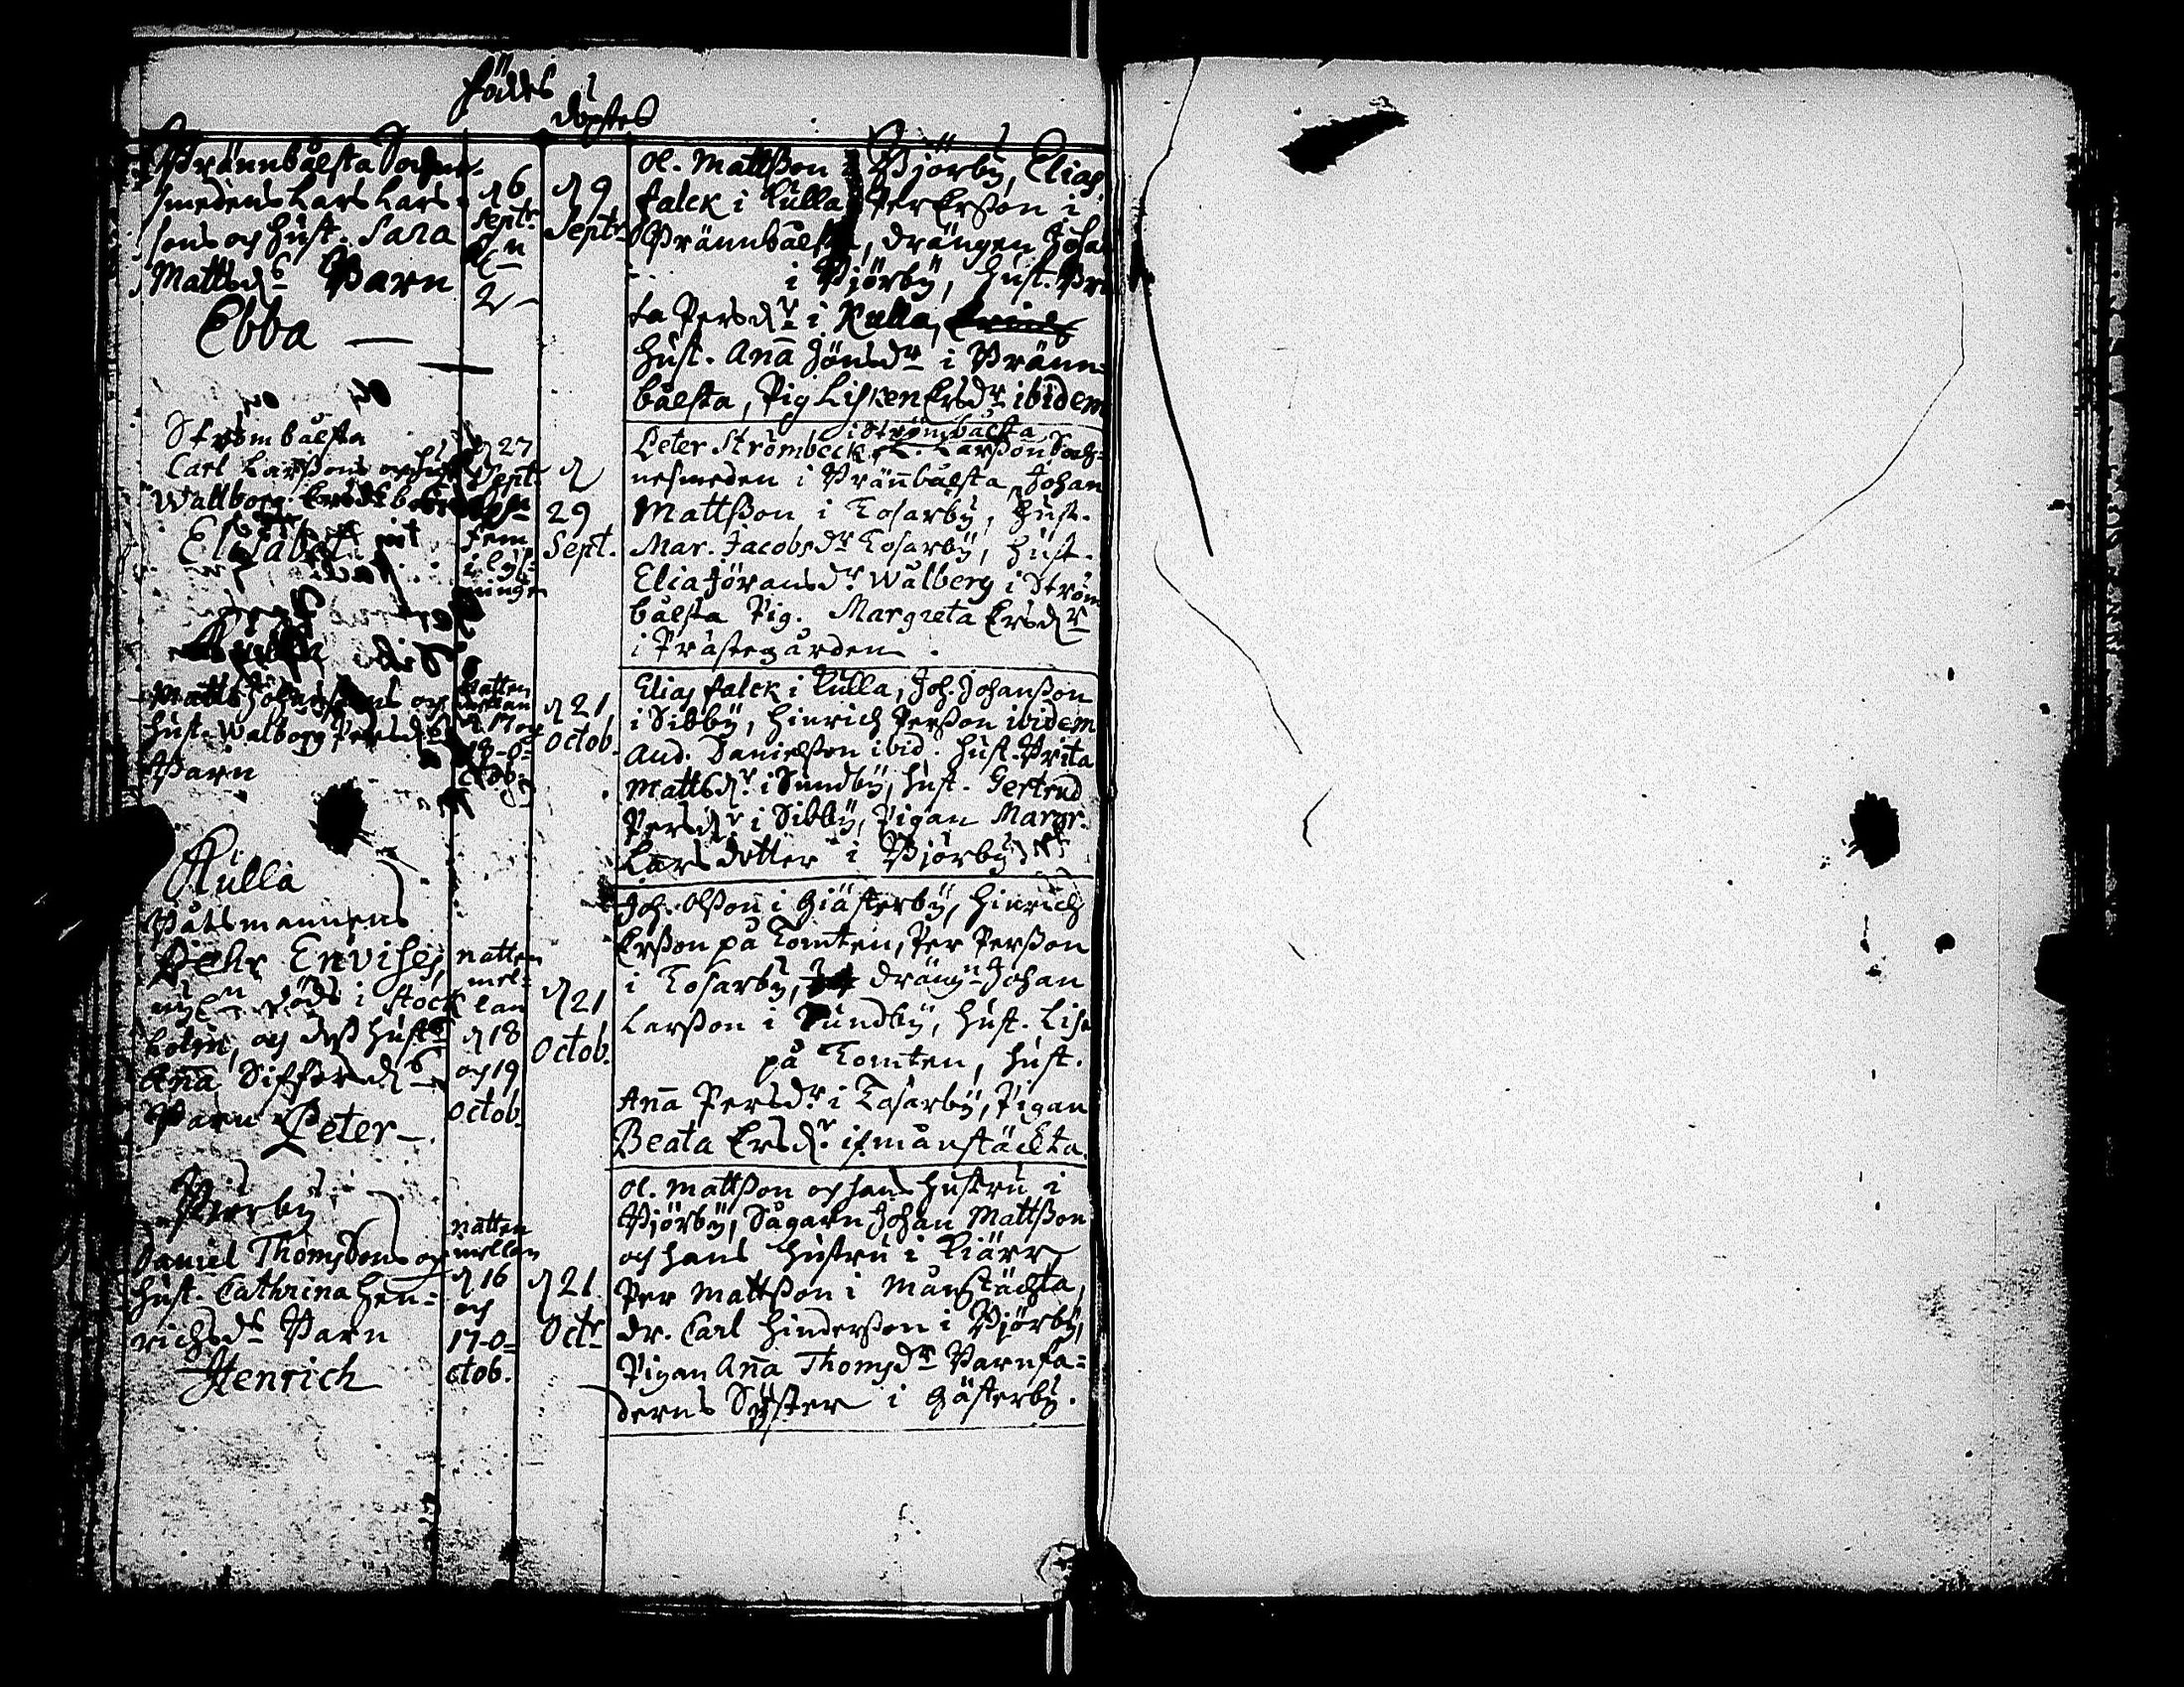 föddes
döptes
Brännbålsta Sochne-
smedens Lars Lars-
sons och hust. Sara
Mattsdr Barn
Ebba
d 6
Septr
kl. n
2
d 9
Septr
Ol. Mattsson i Bjórby, Elias
falck i Kulla, Per Ersson i
Brännbålsta, drängen Joha
i Bjórby, hust. Bri
ta Persdr i Kulla,
hust. Aña Jönsdr i Bränn-
bålsta, Pig Lisken Ersdr ibidem
Strömbålsta
Carl Larssons och hust
Wallborg Ersdr
Elisabet
d 27
Sept.
fem
i lys-
ninge
d
29
Sept.
i Strömbålsta
Peter Strömbeck, C. Larsson Soch-
nesmeden i Brañbålsta, Johan
Mattsson i Tosarby, hust.
Mar. Jacobsdr Tosarby, hust.
Elia Jöransdr Wålberg i Ström
bålsta Pig. Margreta Ersdr
i Prästegården.
Matts Johanssons och
hust. Walborg Persdrs
Barn
Natten
mellan
d. 17 och
18 O-
ctob.
d 21
Octob.
Elias falck i Kulla, Joh. Johansson
i Sibby, Hinrich Persson ibidem
And. Danielsson ibid. hust. Brita
Mattsdr. i Sundby, hust. Gertrud
Persdr i Sibby, Pigan Margr.
Larsdotter i Bjórby
Kulla
Båtsmannens
Pehr Envises,
nu död i Stock
holm, och dess hust
Aña Sifferdr
Barn Peter
natten
mel-
lan
d 18
och 19
Octob.
d 21
Octob.
Joh. Olsson i Giästerby, Hinrich
Ersson på Tomten, Per Persson
i Tosarby, drängn Johan
Larsson i Sundby, hust. Lisa
på Tomten, hust.
Aña Persdr i Tosarby, Pigan
Beata Ersdr. i Månstäckta.
Bjórby
Daniel Thomssons och
hust. Cathrina Hen-
richsdr Barn
Henrich
natten
mellan
d 16
och
17 O-
ctob.
d 21
Octr
Ol. Mattsson och hans hustru i
Bjórby, Sågarn Johan Mattsson
och hans hustru i Kiärr
Per Mattsson i Månstächta,
dr. Carl Hindersson i Bjórby,
Pigan Aña Thomsdr Barnfa-
derns Syster i Gästerby.